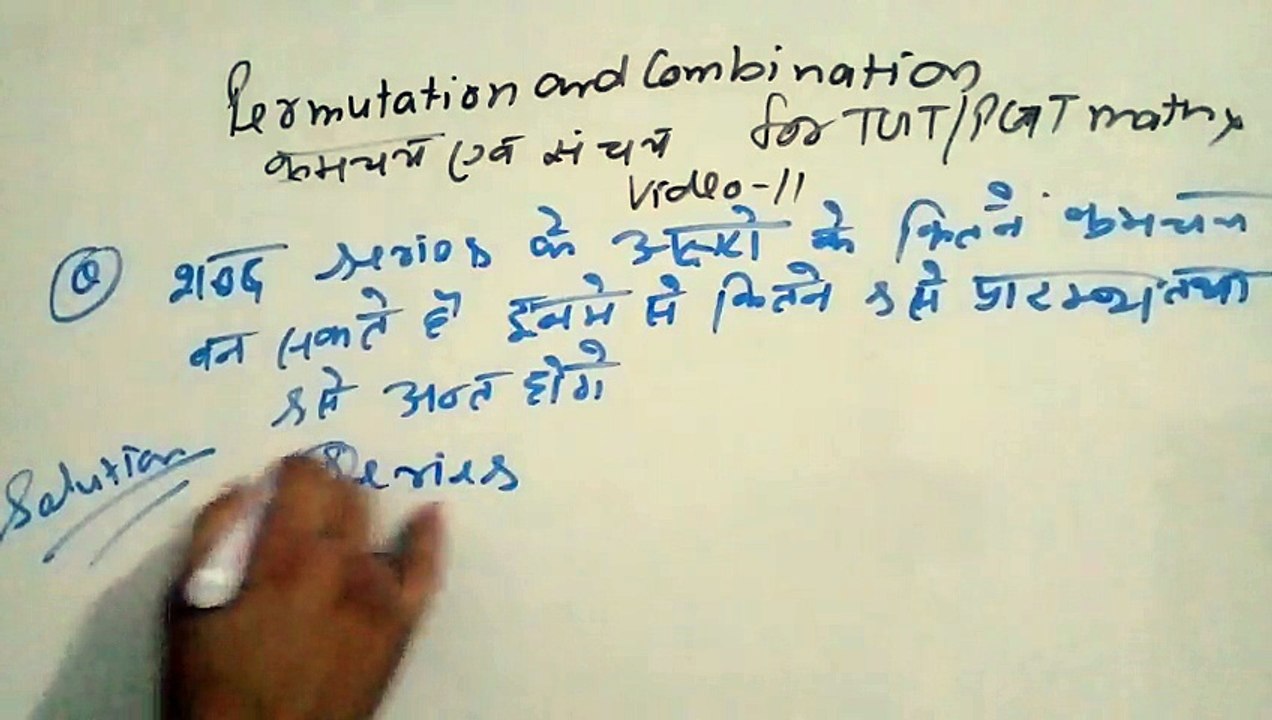 Permutation and Combination
क्रमचय एवं संचय for TGT/PGT math
Video-11
Q शब्द series के अक्षरो के कितने क्रमचय
बन सकते है इनमे से कितने s से प्रारम्भ तथा
s से अन्त होगे
Solution series